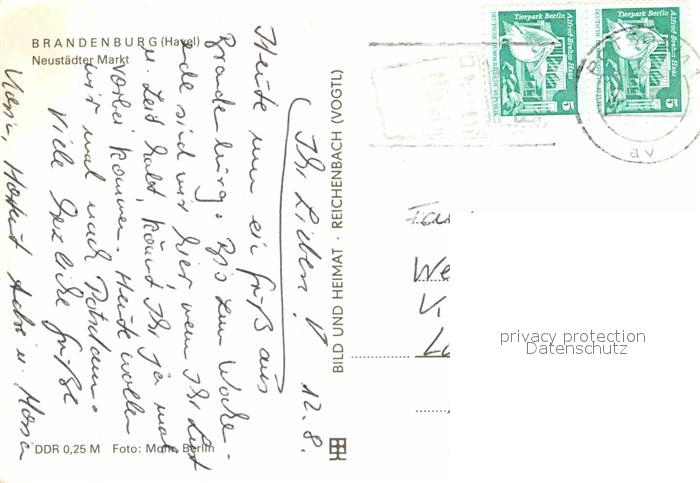 BRANDENBURG (Havel)
Neustädter Markt
Ihr Lieben! 12.8.
Heute nun ein Gruß aus
Brandenburg. Bis zum Wochen-
ende sind wir hier, wenn Ihr Lust
u. Zeit habt, könnt Ihr ja mal
vorbei kommen. Heute wollen
wir mal nach Potsdam.
Viele herzliche Grüße
DDR 0,25 M Foto: Mohr, Berlin
BILD UND HEIMAT · REICHENBACH (VOGTL)
Tierpark Berlin
Alfred-Brehm-Haus
DEUTSCHE DEMOKRATISCHE REPUBLIK
5
Tierpark Berlin
Alfred-Brehm-Haus
5
av
We
privacy protection
Datenschutz